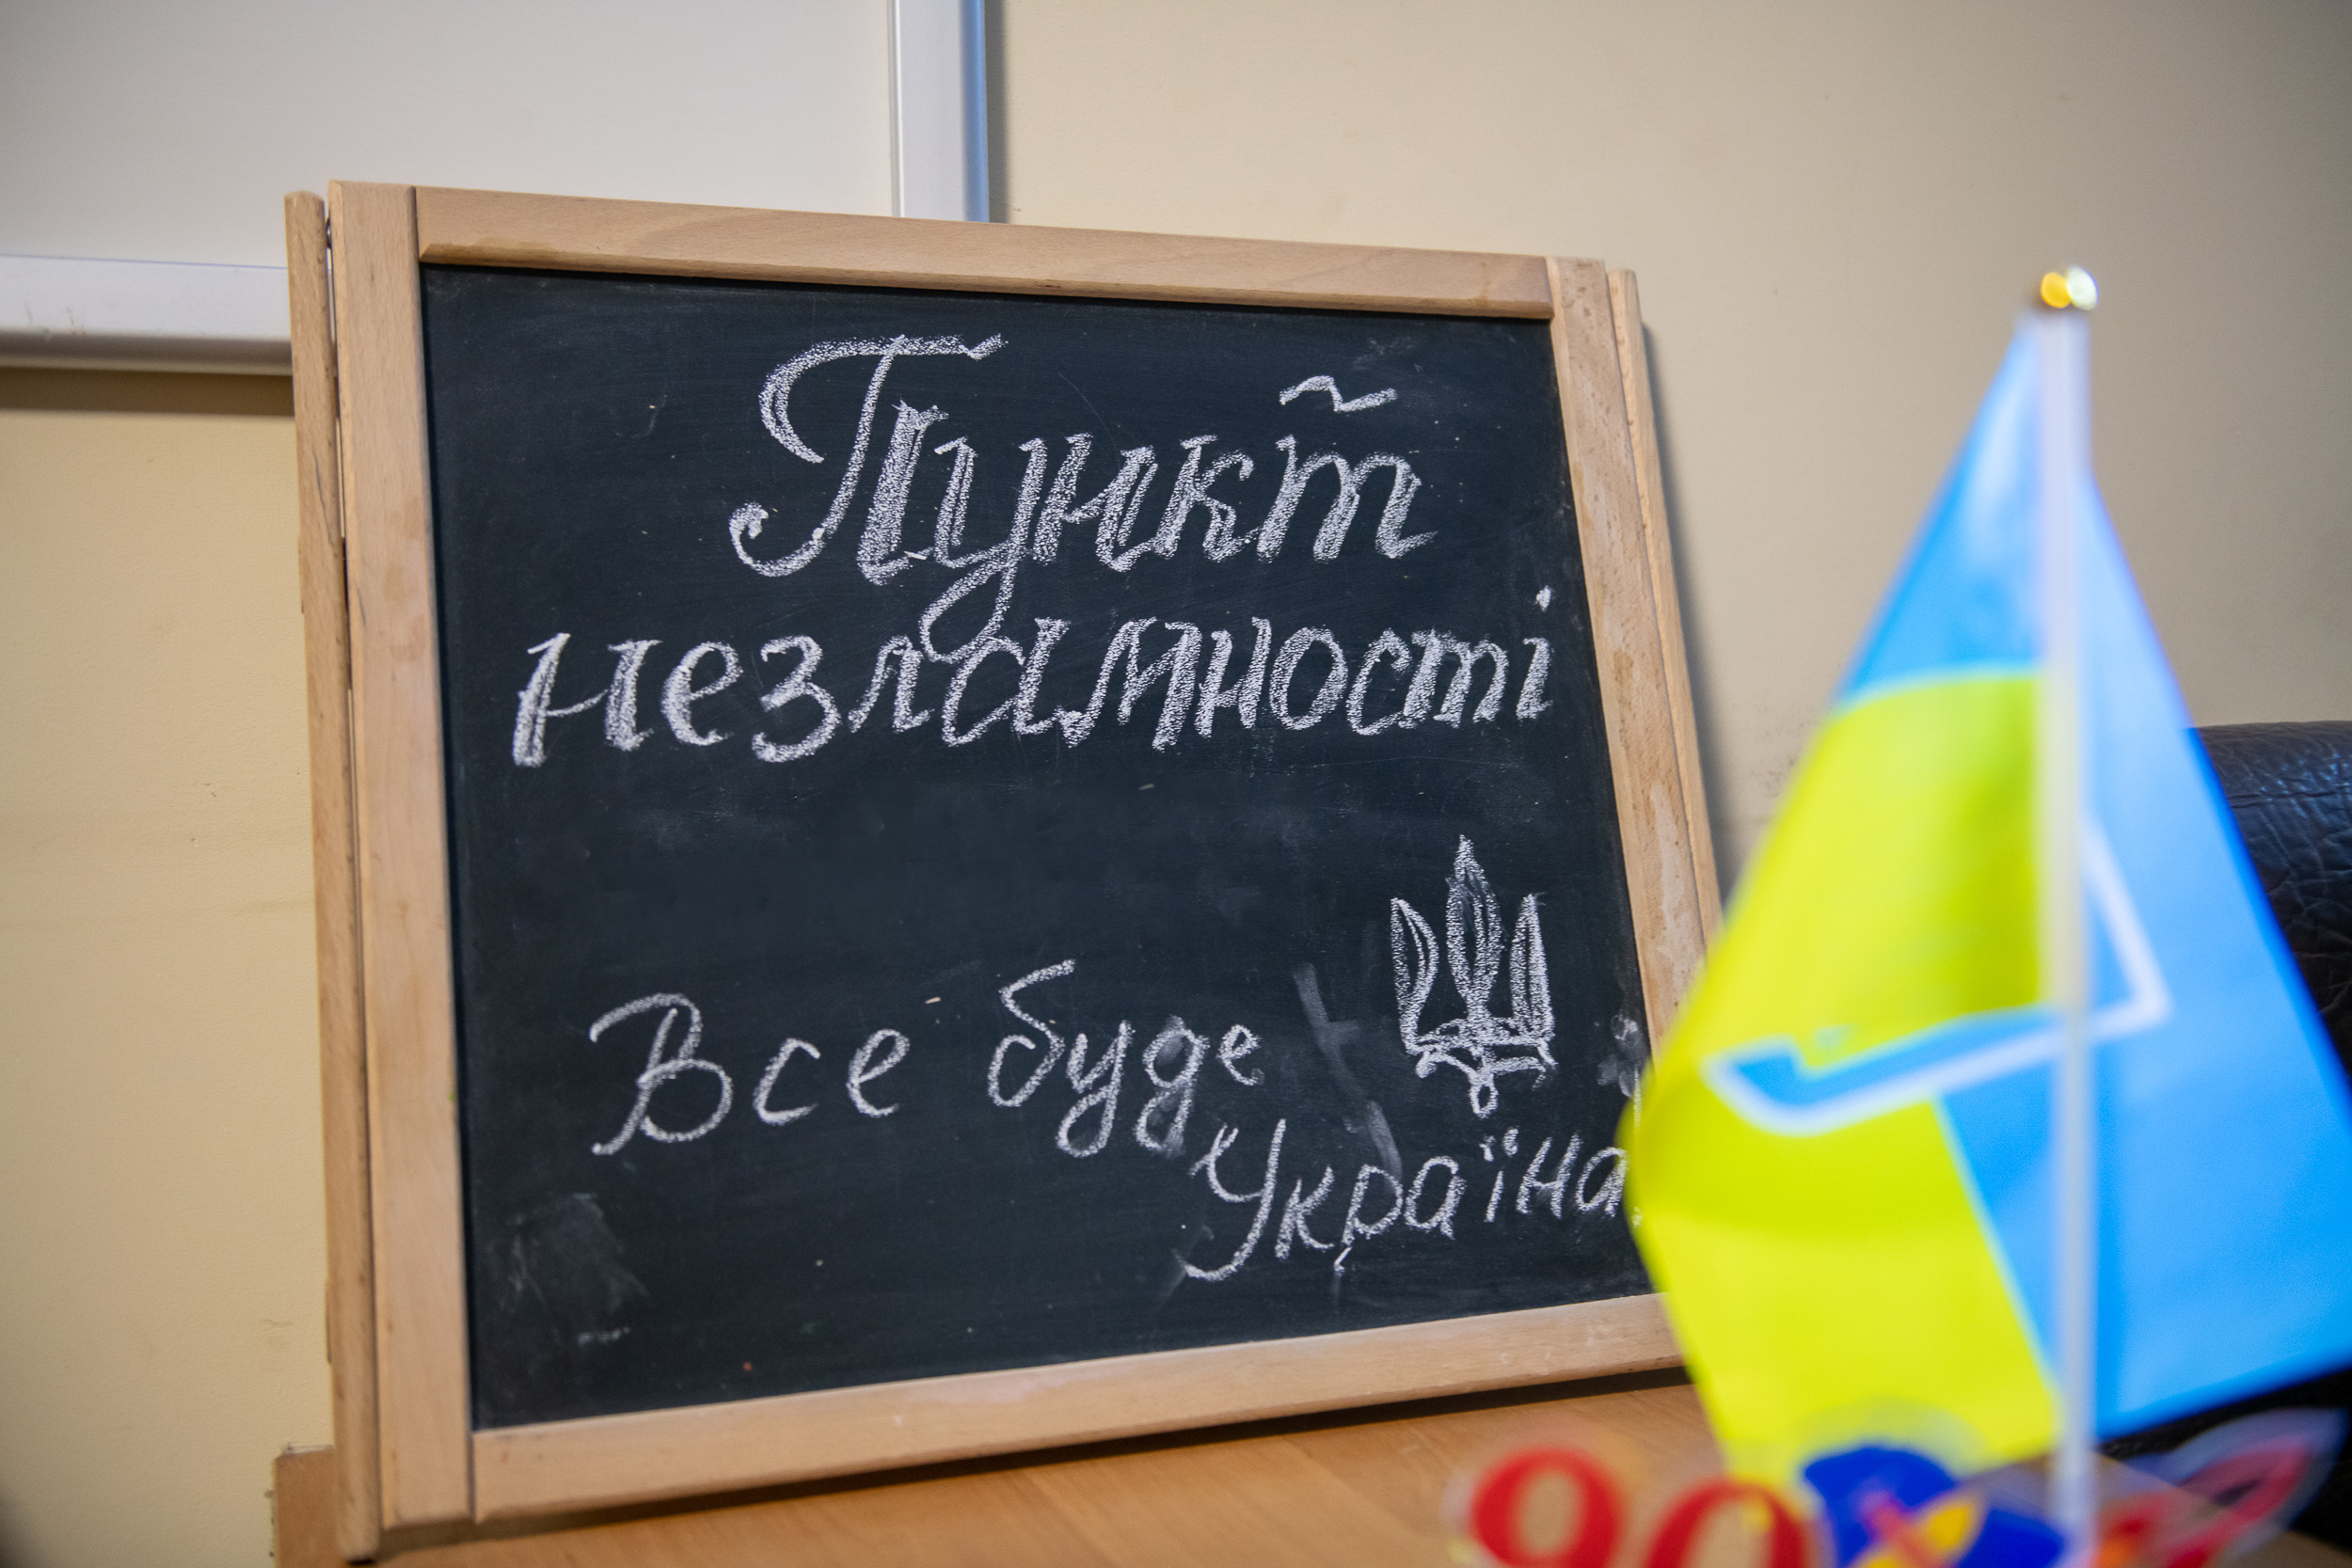 Пункт
незламності
Все буде
Україна
90